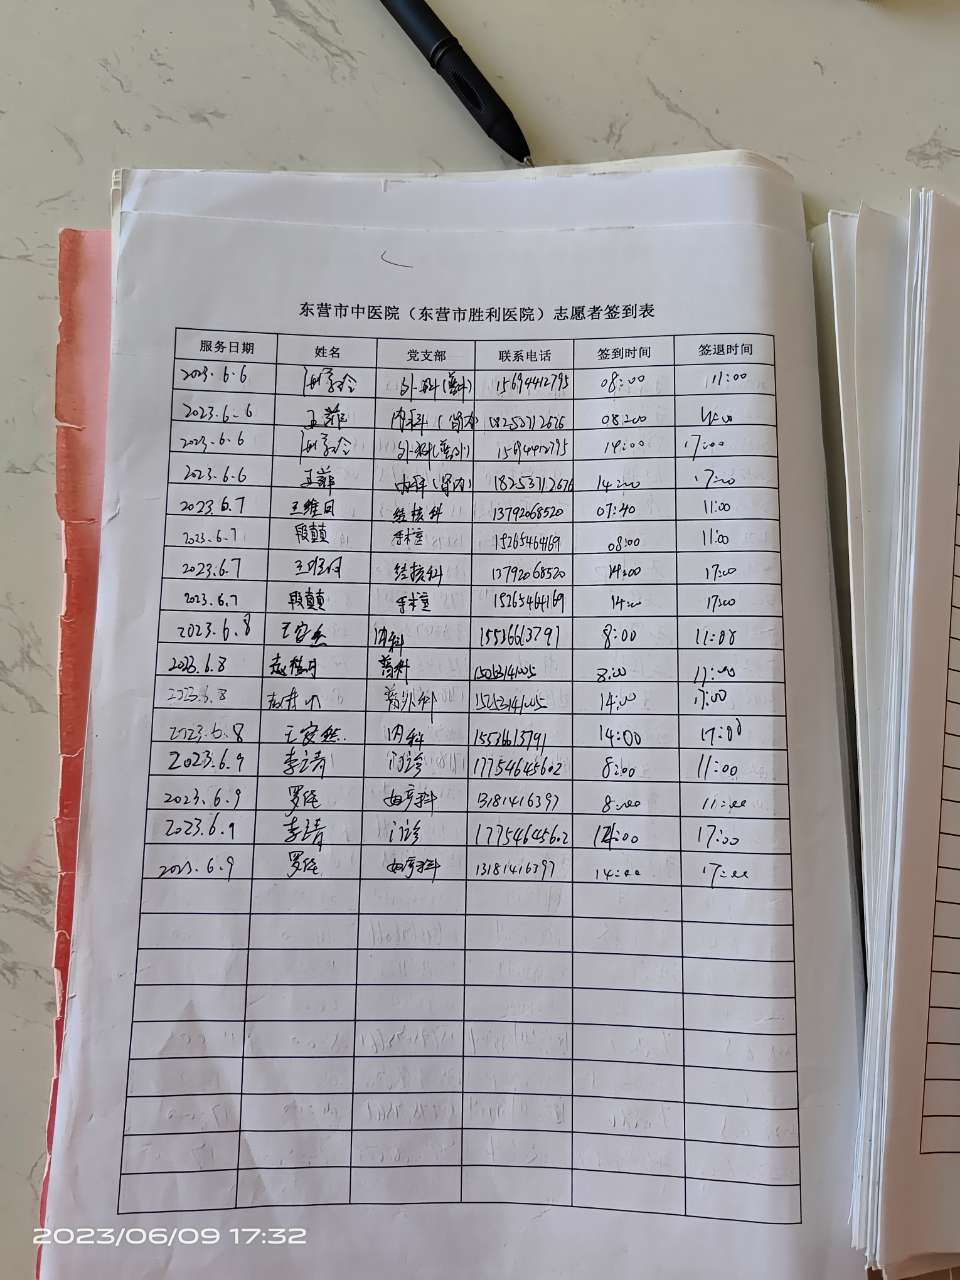 东营市中医院（东营市胜利医院）志愿者签到表
服务日期 姓名 党支部 联系电话 签到时间 签退时间
2023.6.6 外科(普外) 15694412795 08:00 11:00
2023.6.6 王菲 内科（肾内） 18253712676 08:00 11:00
2023.6.6 外科(普外) 15694412795 14:00 17:00
2023.6.6 王菲 内科(肾内) 18253712676 14:00 17:00
2023.6.7 王维国 结核科 13792068520 07:40 11:00
2023.6.7 段颠 手术室 15265464169 08:00 11:00
2023.6.7 结核科 13792068520 14:00 17:00
2023.6.7 段颠 手术室 15265464169 14:00 17:00
2023.6.8 内科 8:00 11:00
2023.6.8 普外科 8:00 11:00
2023.6.8 普外科 14:00 17:00
2023.6.8 内科 14:00 17:00
2023.6.9 李清 门诊 17754645602 8:00 11:00
2023.6.9 罗纯 妇产科 13181416397 8:00 11:00
2023.6.9 李清 门诊 17754645602 14:00 17:00
2023.6.9 罗纯 妇产科 13181416397 14:00 17:00
2023/06/09 17:32